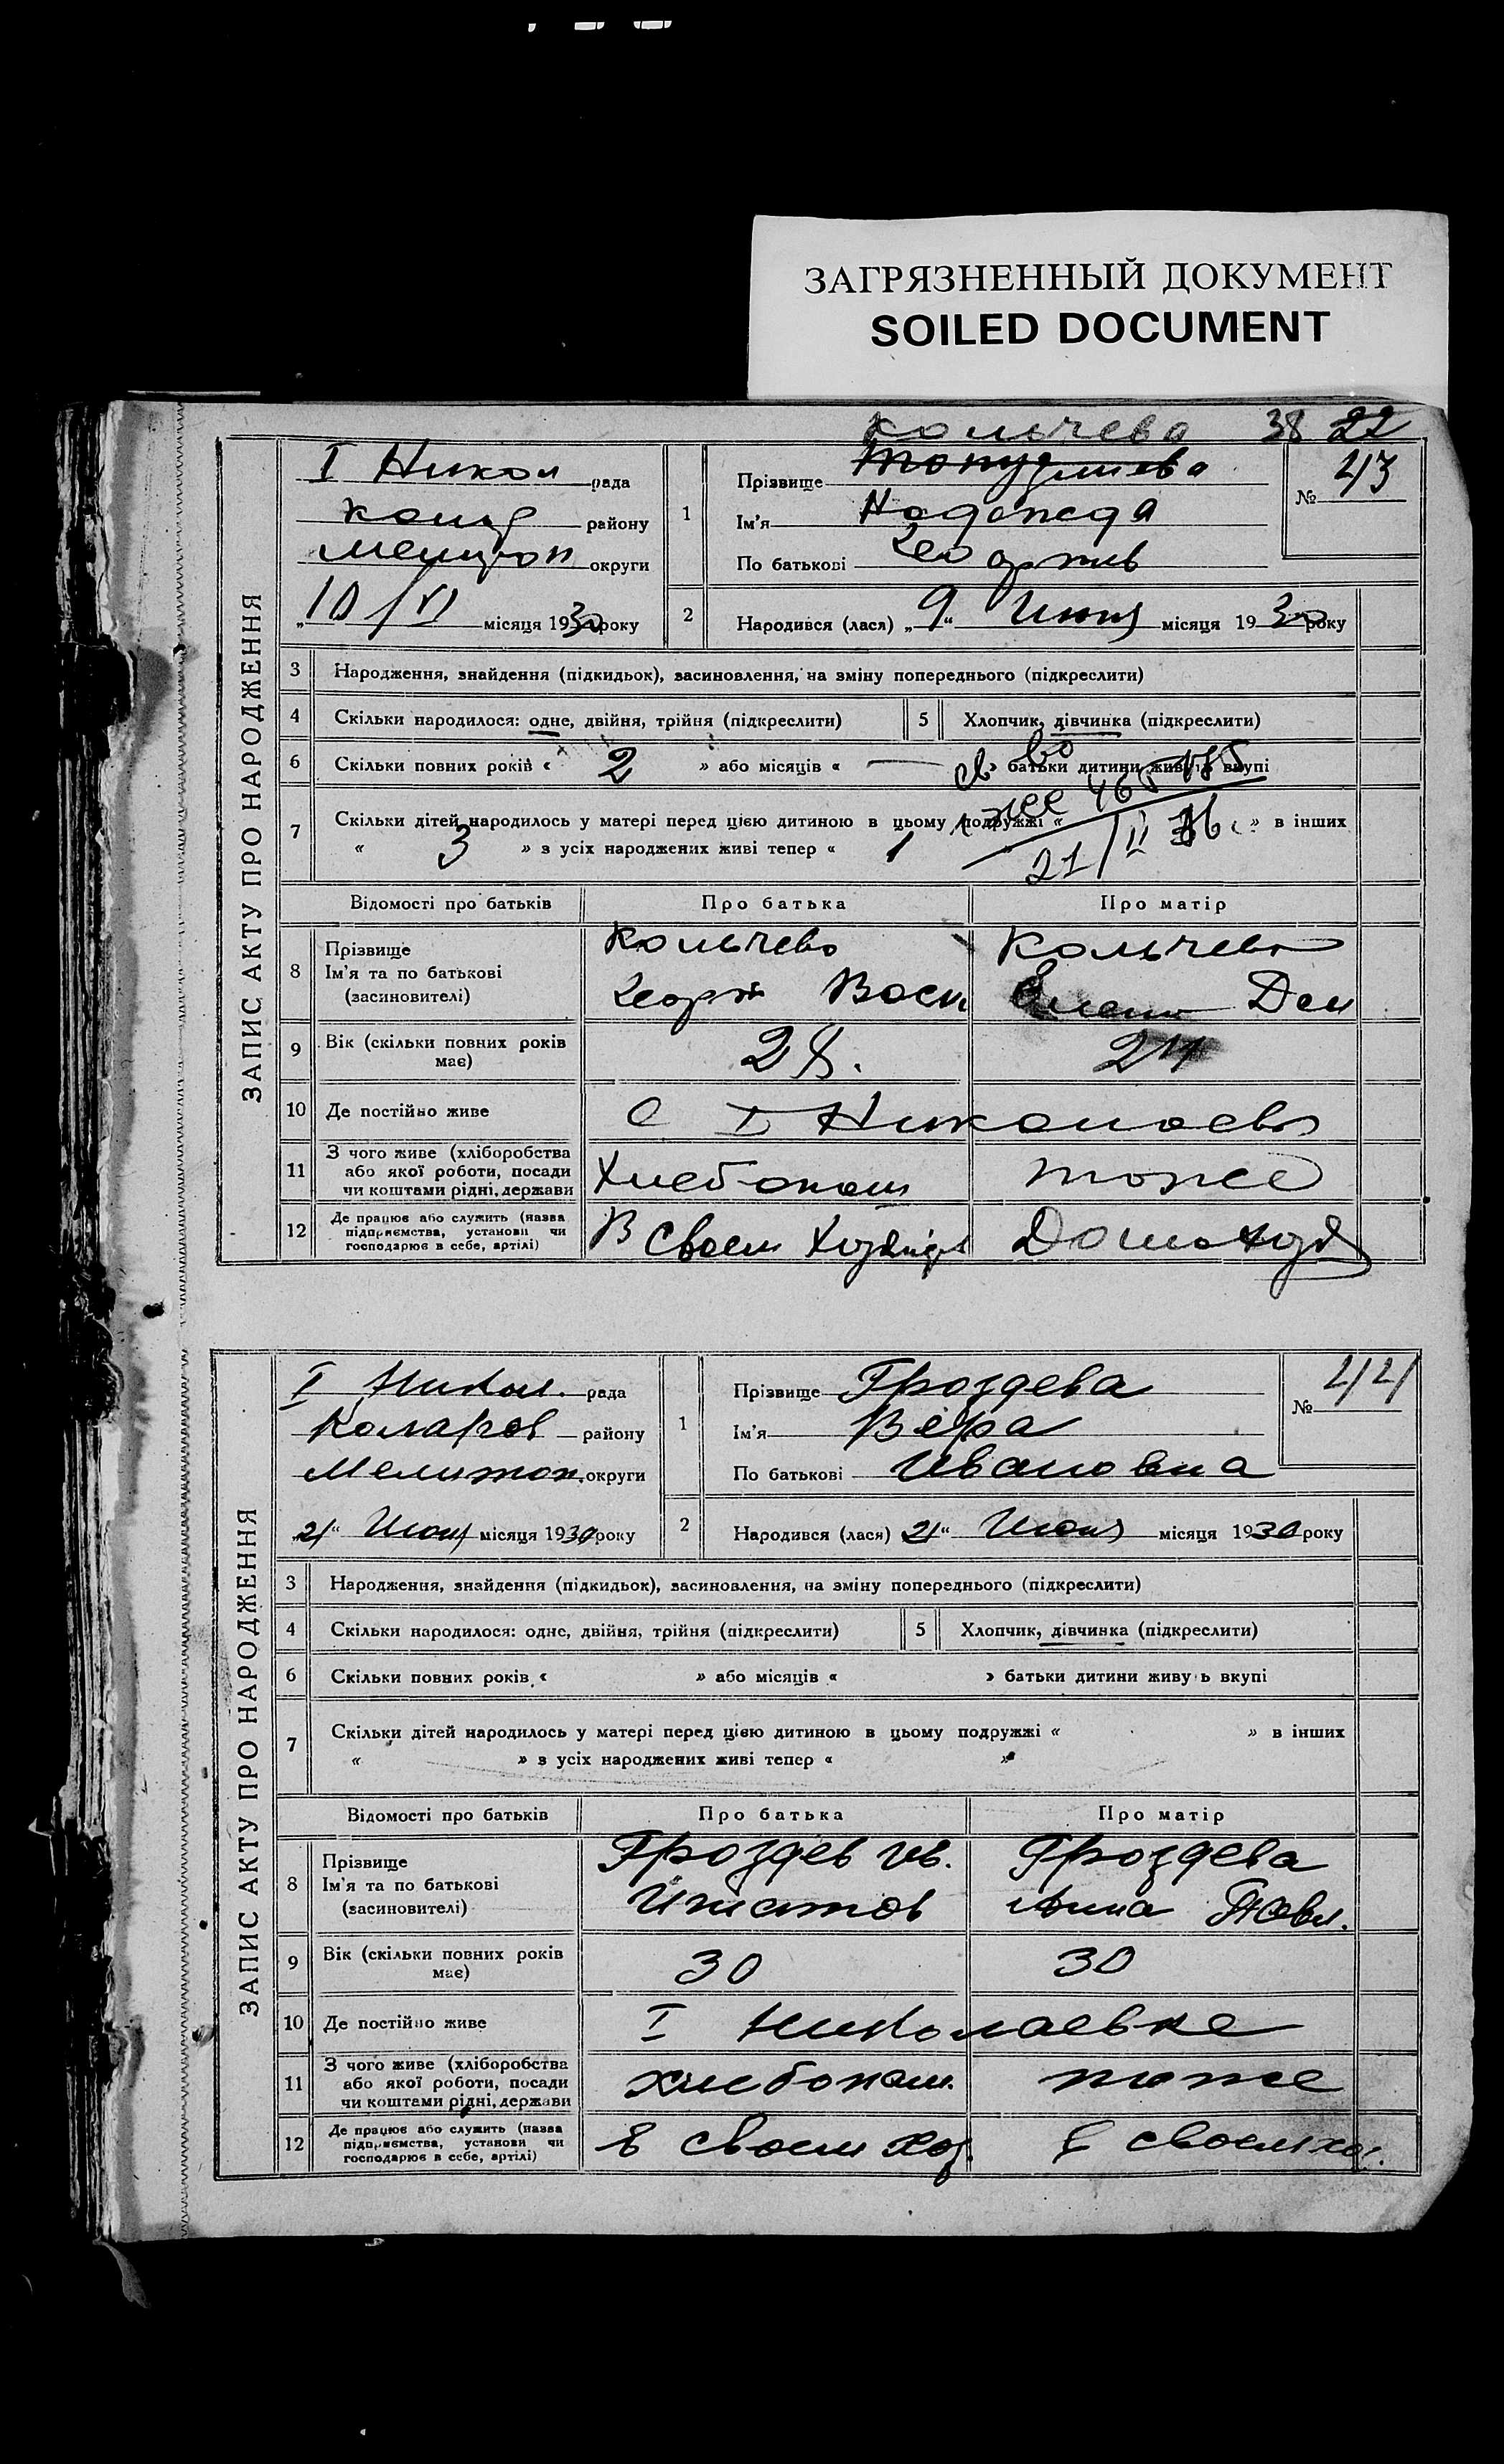 ЗАГРЯЗНЕННЫЙ ДОКУМЕНТ
SOILED DOCUMENT
Кольчева 38 22
ЗАПИС АКТУ ПРО НАРОДЖЕННЯ
I Никол рада
району
округи
„10/VI місяця 1930 року
1
Прізвище
Ім'я Надежда
По батькові
№ 43
2 Народився (лася) „9“ Июня місяця 1930 року
3 Народження, знайдення (підкидьок), засиновлення, на зміну попереднього (підкреслити)
4 Скільки народилося: одне, двійня, трійня (підкреслити) 5 Хлопчик, дівчинка (підкреслити)
6 Скільки повних років « 2 » або місяців « — » батьки дитини живуть вкупі
7 Скільки дітей народилось у матері перед цією дитиною в цьому подружжі « » в інших
« 3 » з усіх народжених живі тепер « 1
21/II 36
Відомості про батьків Про батька Про матір
8 Прізвище
Ім'я та по батькові
(засиновителі)
Кольчево
Васи
Кольчева
Елена Дем
9 Вік (скільки повних років має) 28. 24
10 Де постійно живе с I Николаевка
11 З чого живе (хліборобства або якої роботи, посади чи коштами рідні, держави Хлебопаш тоже
12 Де працює або служить (назва підприємства, установи чи господарює в себе, артілі) В своем Домохоз
ЗАПИС АКТУ ПРО НАРОДЖЕННЯ
I Никол. рада
Коларов району
Мелитоп. округи
„21“ Июня місяця 1930 року
1
Прізвище Гроздева
Ім'я Вера
По батькові Ивановна
№ 44
2 Народився (лася) 21“ Июня місяця 1930 року
3 Народження, знайдення (підкидьок), засиновлення, на зміну попереднього (підкреслити)
4 Скільки народилося: одне, двійня, трійня (підкреслити) 5 Хлопчик, дівчинка (підкреслити)
6 Скільки повних років « » або місяців « » батьки дитини живуть вкупі
7 Скільки дітей народилось у матері перед цією дитиною в цьому подружжі « » в інших
« » з усіх народжених живі тепер « »
Відомості про батьків Про батька Про матір
8 Прізвище
Ім'я та по батькові
(засиновителі)
Гроздев Ив.
Игнатов
Гроздева
Анна Павл.
9 Вік (скільки повних років має) 30 30
10 Де постійно живе I Николаевке
11 З чого живе (хліборобства або якої роботи, посади чи коштами рідні, держави хлебопаш. тоже
12 Де працює або служить (назва підприємства, установи чи господарює в себе, артілі) В своем хоз. В своем хоз.